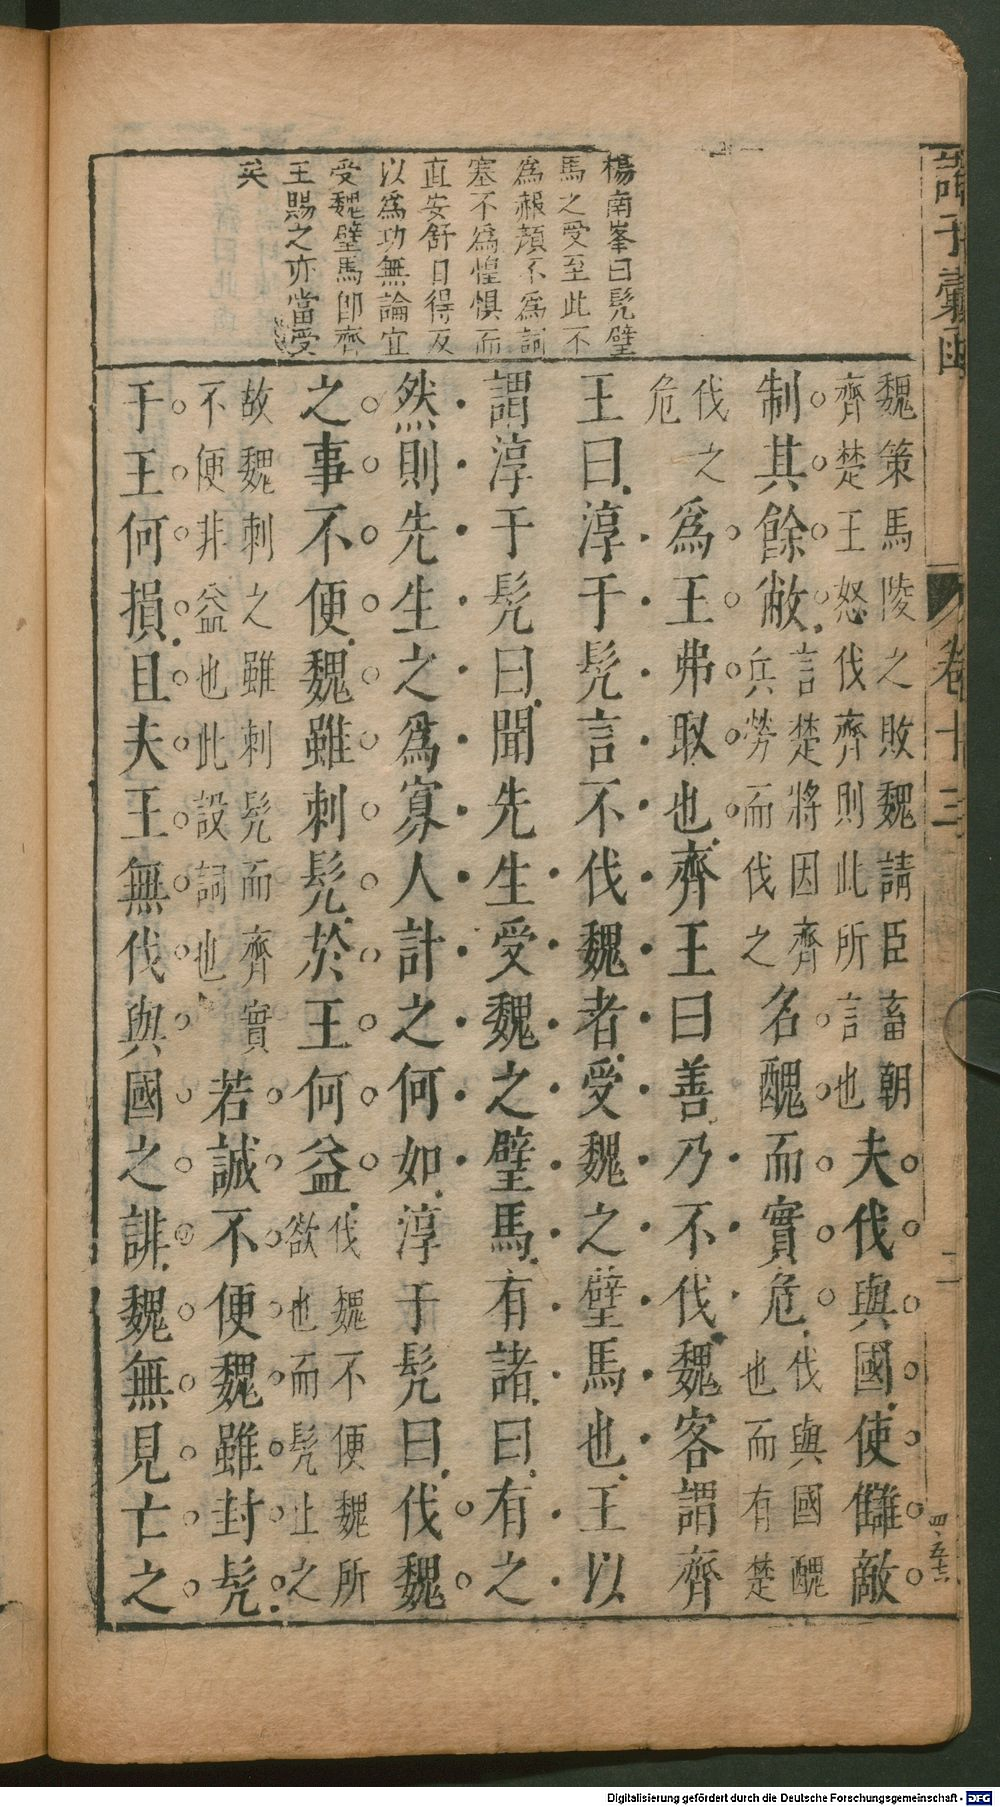 諸子彙函
卷十三
二
楊南峯曰髠璧
馬之受至此不
為赧顏不為詞
塞不為惶惧而
直安舒曰得反
以為功無論宜
受魏璧馬卽齊
王賜之亦當受
矣
魏策馬陵之敗魏請臣畜朝
齊楚王怒伐齊則此所言也
夫伐與國使讎敵
制其餘敝
言楚將因齊
兵勞而伐之
名醜而實危
伐與國醜
也而有楚
伐之
危
爲王弗取也齊王曰善乃不伐魏客謂齊
王曰淳于髠言不伐魏者受魏之璧馬也王以
謂淳于髠曰聞先生受魏之璧馬有諸曰有之
然則先生之爲寡人計之何如淳于髠曰伐魏
之事不便魏雖刺髠於王何益
伐魏不便魏所
欲也而髠止之
故魏刺之雖刺髠而齊實
不便非益也此設詞也
若誠不便魏雖封髠
于王何損且夫王無伐與國之誹魏無見亡之
Digitalisierung gefördert durch die Deutsche Forschungsgemeinschaft - DFG